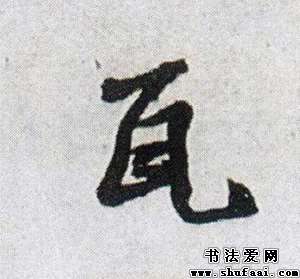 瓦
书法爱网
www.shufaai.com